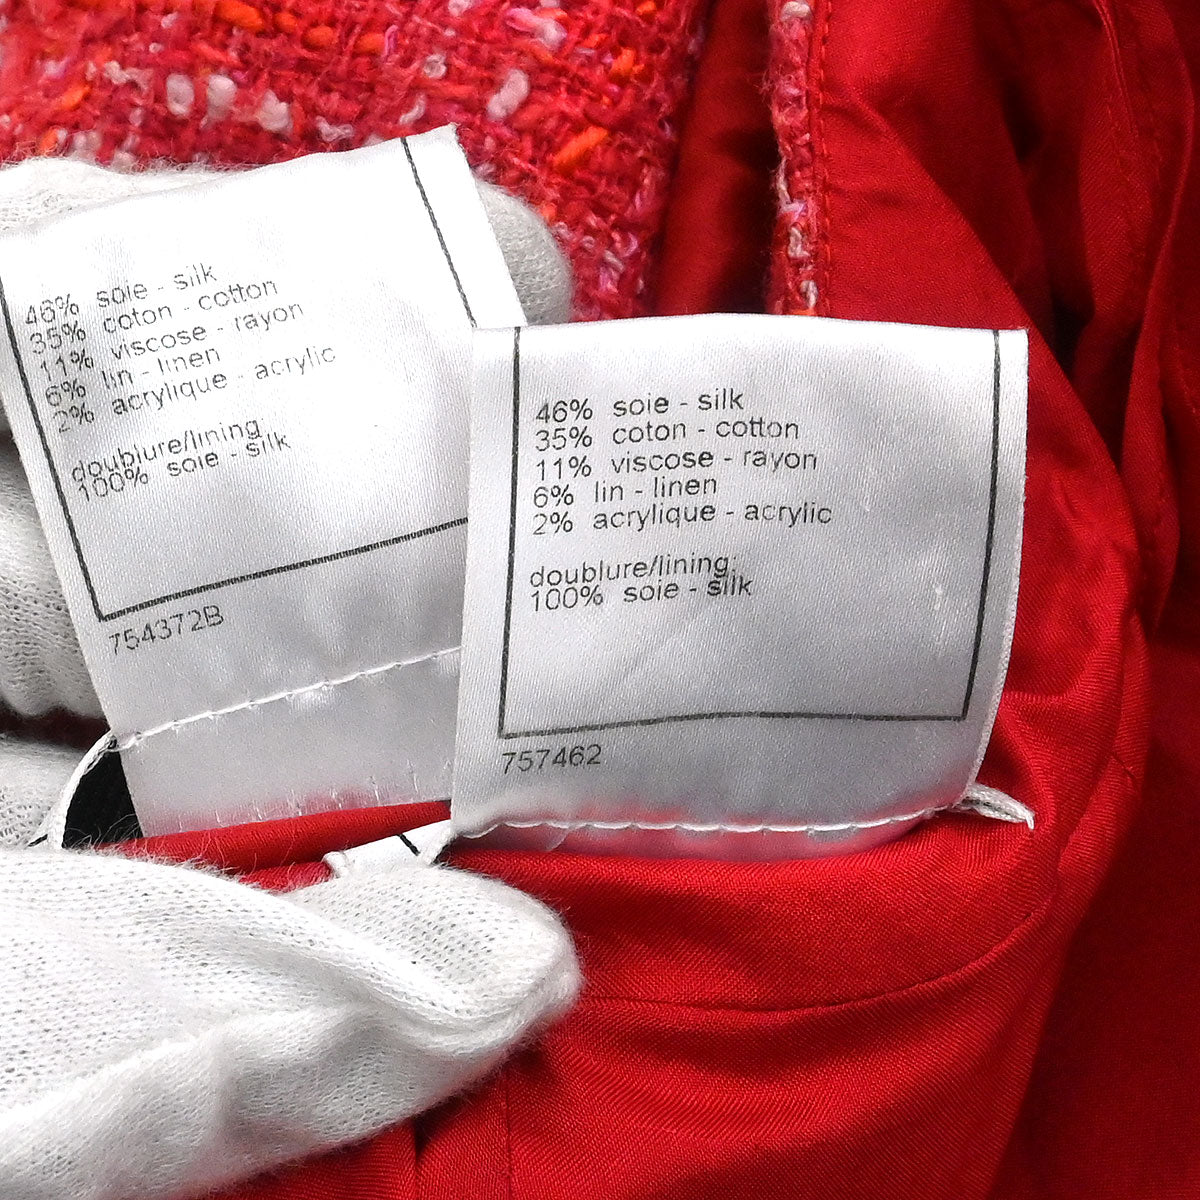 46% soie - silk
35% coton - cotton
11% viscose - rayon
6% lin - linen
2% acrylique - acrylic
doublure/lining
100% soie - silk
754372B
46% soie - silk
35% coton - cotton
11% viscose - rayon
6% lin - linen
2% acrylique - acrylic
doublure/lining:
100% soie - silk
757462